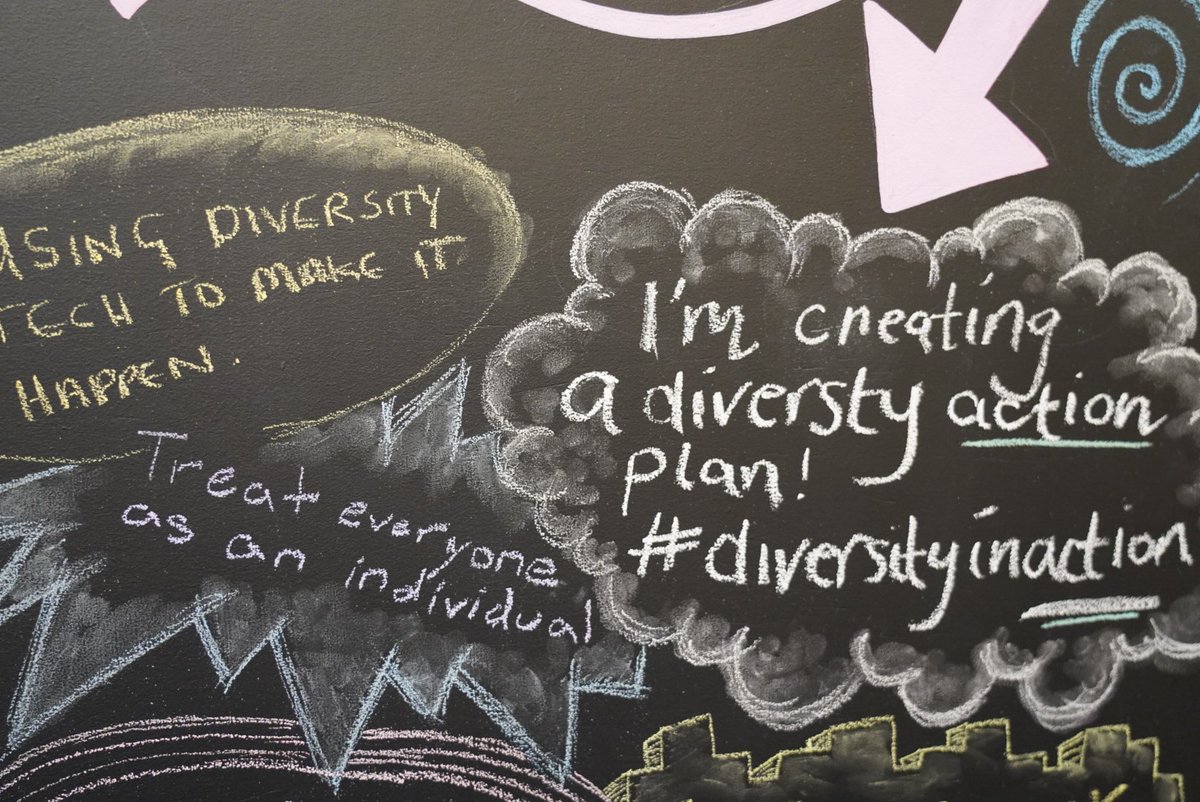 USING DIVERSITY
TECH TO MAKE IT
HAPPEN.
Treat everyone
as an individual
I'm creating
a diversty action
plan!
#diversityinaction